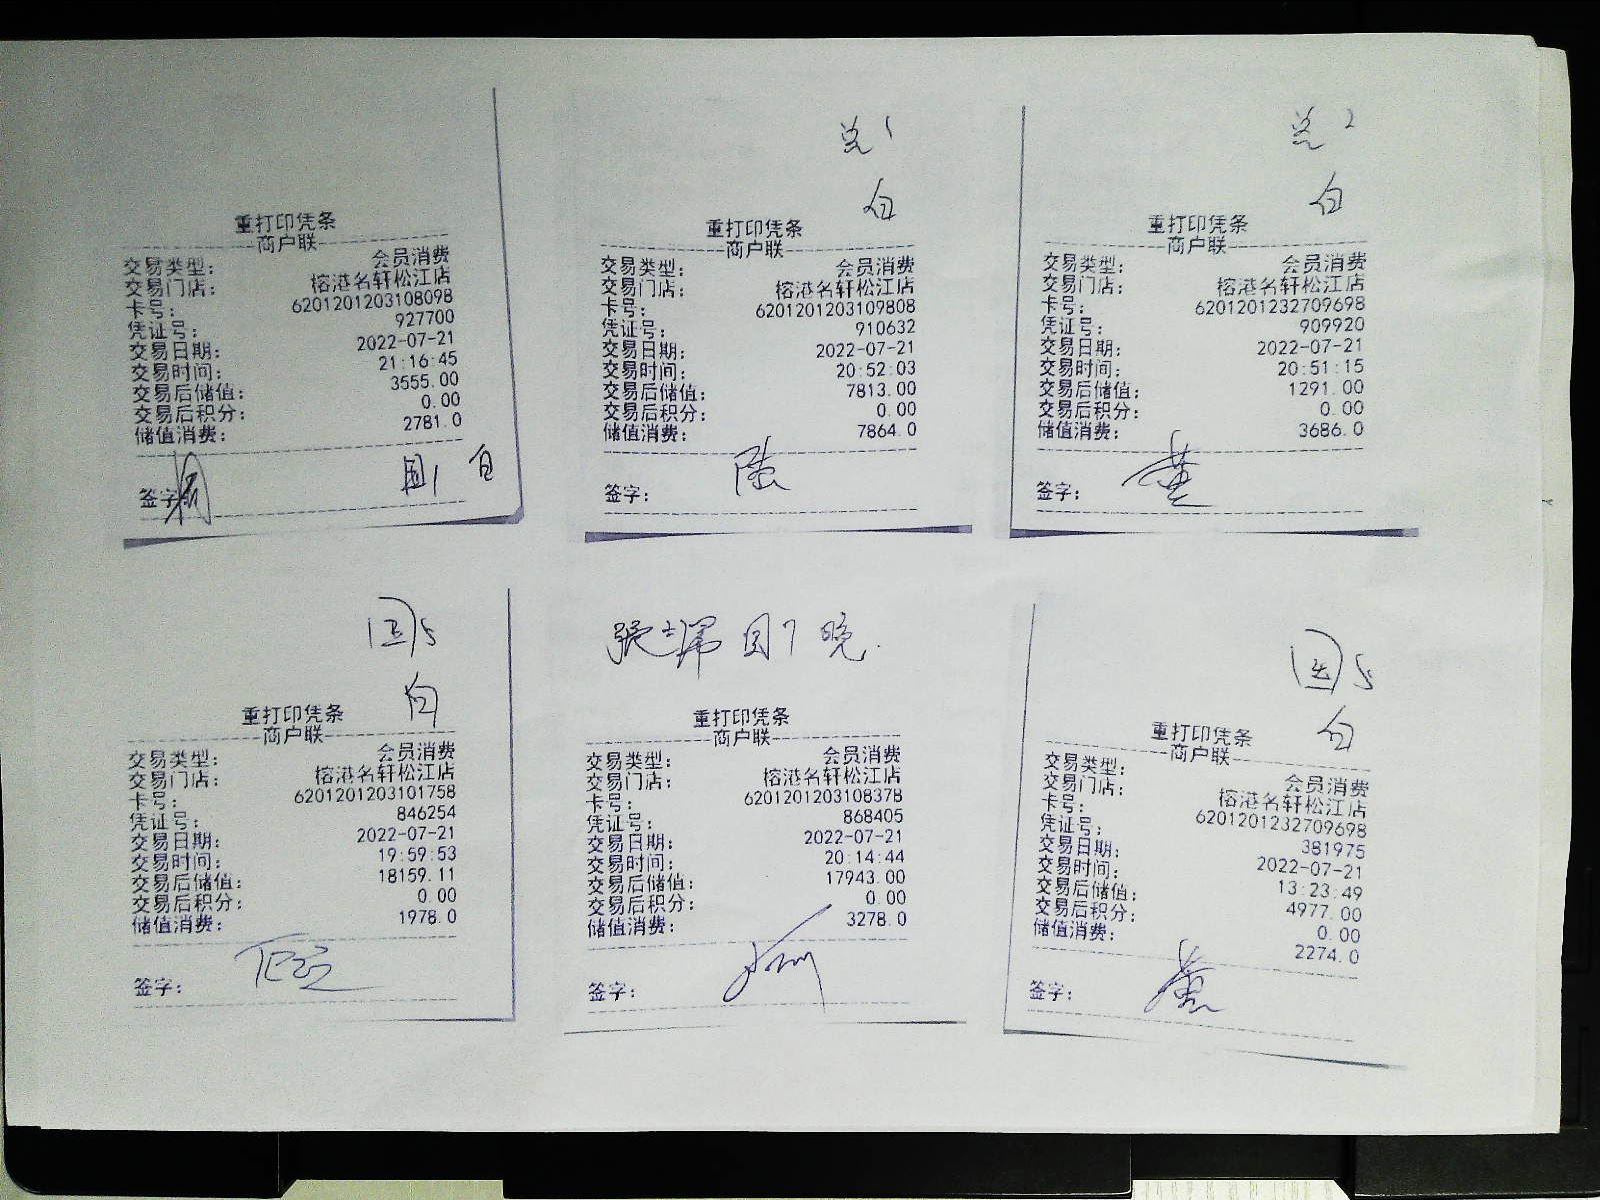 重打印凭条
商户联
交易类型: 会员消费
交易门店: 榕港名轩松江店
卡号: 6201201203108098
凭证号: 927700
交易日期: 2022-07-21
交易时间: 21:16:45
交易后储值: 3555.00
交易后积分: 0.00
储值消费: 2781.0
签字:
总1
白
重打印凭条
商户联
交易类型: 会员消费
交易门店: 榕港名轩松江店
卡号: 6201201203109808
凭证号: 910632
交易日期: 2022-07-21
交易时间: 20:52:03
交易后储值: 7813.00
交易后积分: 0.00
储值消费: 7864.0
签字: 陆
总2
白
重打印凭条
商户联
交易类型: 会员消费
交易门店: 榕港名轩松江店
卡号: 6201201232709698
凭证号: 909920
交易日期: 2022-07-21
交易时间: 20:51:15
交易后储值: 1291.00
交易后积分: 0.00
储值消费: 3686.0
签字: 黄
国5
白
重打印凭条
商户联
交易类型: 会员消费
交易门店: 榕港名轩松江店
卡号: 6201201203101758
凭证号: 846254
交易日期: 2022-07-21
交易时间: 19:59:53
交易后储值: 18159.11
交易后积分: 0.00
储值消费: 1978.0
签字:
国7 晚
重打印凭条
商户联
交易类型: 会员消费
交易门店: 榕港名轩松江店
卡号: 6201201203108378
凭证号: 868405
交易日期: 2022-07-21
交易时间: 20:14:44
交易后储值: 17943.00
交易后积分: 0.00
储值消费: 3278.0
签字:
国5
白
重打印凭条
商户联
交易类型: 会员消费
交易门店: 榕港名轩松江店
卡号: 6201201232709698
凭证号: 381975
交易日期: 2022-07-21
交易时间: 13:23:49
交易后储值: 4977.00
交易后积分: 0.00
储值消费: 2274.0
签字: 黄